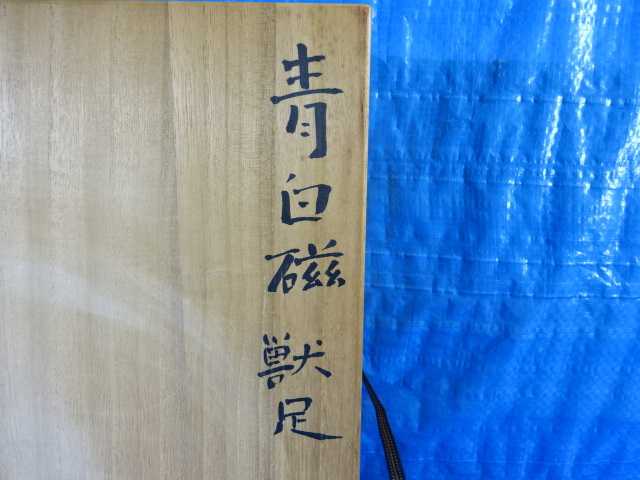 青白磁 獣足